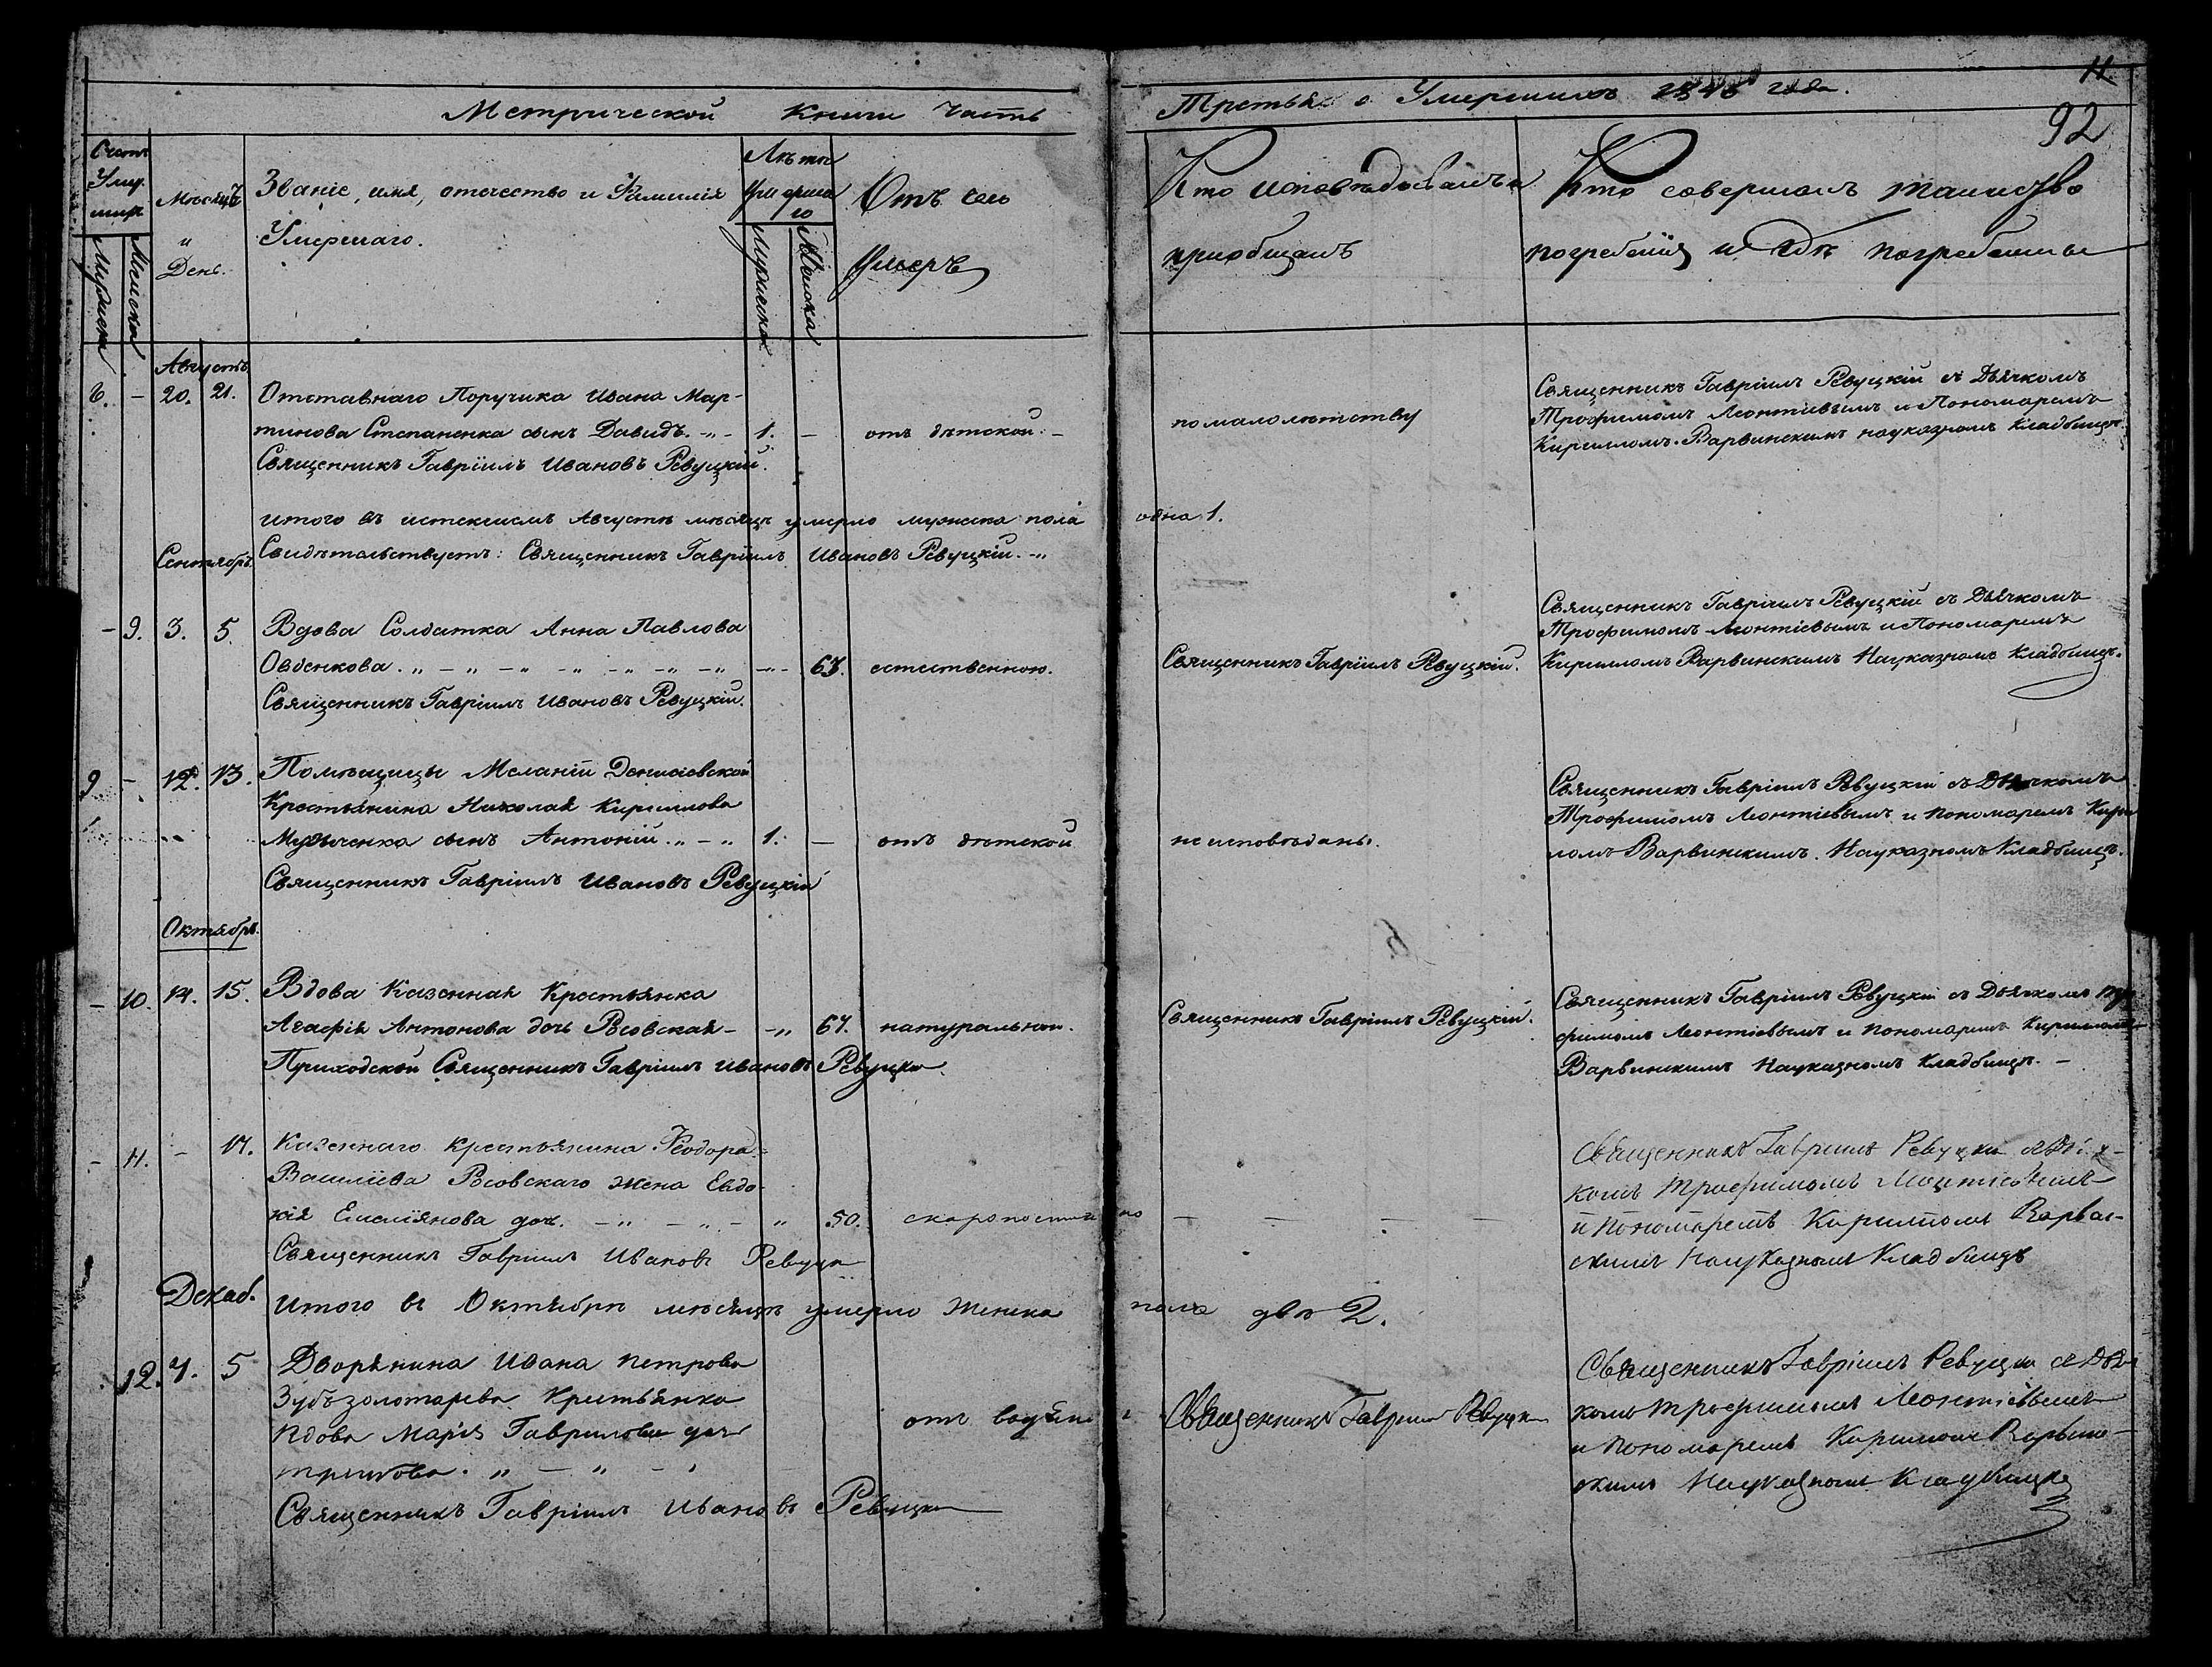 Метрической Книги Часть
Третья о Умершихъ 1848 года.
11.
92
Счетъ
Умер
шихъ
Мужеска
Женска
Мѣсяцъ
и
День.
Званіе, имя, отечество и Фамилія
Умершаго.
Лѣты
Умершаго
Мужеска
Женска
Отъ чего
Умеръ
Кто исповѣдовалъ и
приобщалъ
Кто совершалъ таинство
погребенія и Гдѣ погребенны
Августъ
6. - 20. 21. Отставнаго Поручика Ивана Мар-
тинова Степаненка сынъ Давидъ. 1. - отъ дѣтской. -
Священникъ Гавріилъ Ивановъ Ревуцкій.
по малолѣтству
Священникъ Гавріилъ Ревуцкій съ Дьячкомъ
Трофимомъ Леонтіевымъ и Пономаремъ
Кирилломъ Варвинскимъ науказномъ кладбищѣ
итого въ истекшемъ Августѣ мѣсяцѣ умерло мужеска пола одна 1.
Сентябрь
Свидѣтельствуетъ: Священникъ Гавріилъ Ивановъ Ревуцкій.
- 9. 3. 5. Вдова Солдатка Анна Павлова
Овденкова. 67. естественною.
Священникъ Гавріилъ Ивановъ Ревуцкій.
Священникъ Гавріилъ Ревуцкій.
Священникъ Гавріилъ Ревуцкій съ Дьячкомъ
Трофимомъ Леонтіевымъ и Пономаремъ
Кирилломъ Варвинскимъ Науказномъ Кладбищѣ.
9 - 12. 13. Помѣщицы Меланіи Денисевской
Крестьянина Николая Кириллова
сынъ Антоній 1. - отъ дѣтской
Священникъ Гавріилъ Ивановъ Ревуцкій
не исповѣданъ.
Священникъ Гавріилъ Ревуцкій съ Дьячкомъ
Трофимомъ Леонтіевымъ и пономаремъ Кирил
ломъ Варвинскимъ. Науказномъ Кладбищѣ.
Октябрь.
- 10. 14. 15. Вдова Казенная Крестьянка
Агафія Антонова дочь 67. натуральною.
Приходской Священникъ Гавріилъ Ивановъ Ревуцкій
Священникъ Гавріилъ Ревуцкій.
Священникъ Гавріилъ Ревуцкій съ Дьячкомъ Тро
фимомъ Леонтіевымъ и пономаремъ Кирилломъ
Варвинскимъ Науказномъ Кладбищѣ. -
- 11. - 17. Казеннаго крестьянина Феодора
Василіева жена Евдо-
кія Емеліянова доч. 50. скоропостижно
Священникъ Гавріилъ Ивановъ Ревуцкій
Священникъ Гавріилъ Ревуцкій съ Дьяч-
комъ Трофимомъ Леонтіевымъ
и Пономаремъ Кирилломъ Варвин-
скимъ Науказномъ Кладбищѣ
Декаб.
итого въ Октябрѣ мѣсяцѣ умерло женска пола двѣ 2.
12. 4. 5 Дворянина Ивана Петрова
Зубъ золотарева Крестьянка
вдова Марія Гаврилова доч
отъ
Священникъ Гавріилъ Ивановъ Ревуцкій
Священникъ Гавріилъ Ревуцкій
Священникъ Гавріилъ Ревуцкій съ Дьяч
комъ Трофимомъ Леонтіевымъ
и пономаремъ Кирилломъ Варвин-
скимъ Науказномъ Кладбищѣ